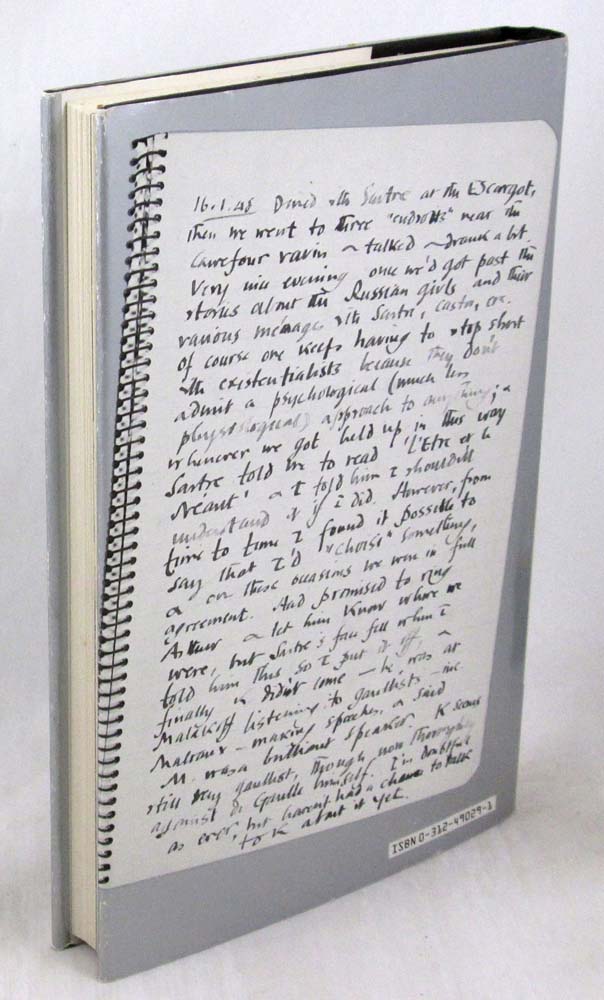 16.1.48 Dined with Sartre at the Escargot,
then we went to three "endroits" near the
Carrefour Vavin ~ talked ~ drank a lot.
Very nice evening, once we'd got past the
stories about the Russian girls and their
various ménages with Sartre, Castor, etc.
Of course one keeps having to stop short
with existentialists because they don't
admit a psychological (much less
physiological) approach to anything; &
whenever we got held up in this way
Sartre told me to read 'L'Etre et le
Néant' & I told him I shouldn't
understand it if I did. However, from
time to time I found it possible to
say that I'd "choisi" something,
& on these occasions we were in full
agreement. Had promised to ring
Arthur & let him know where we
were, but Sartre's face fell when I
told him this so I put it off, &
finally K didn't come — K. was at
Malakoff listening to gaullists — inc.
Malraux — making speeches, & said
M. was a brilliant speaker. K seems
still very gaullist, though now thoroughly
against de Gaulle himself. I'm doubtful
as ever, but haven't had a chance to talk
to K about it yet.
ISBN 0-312-49029-1